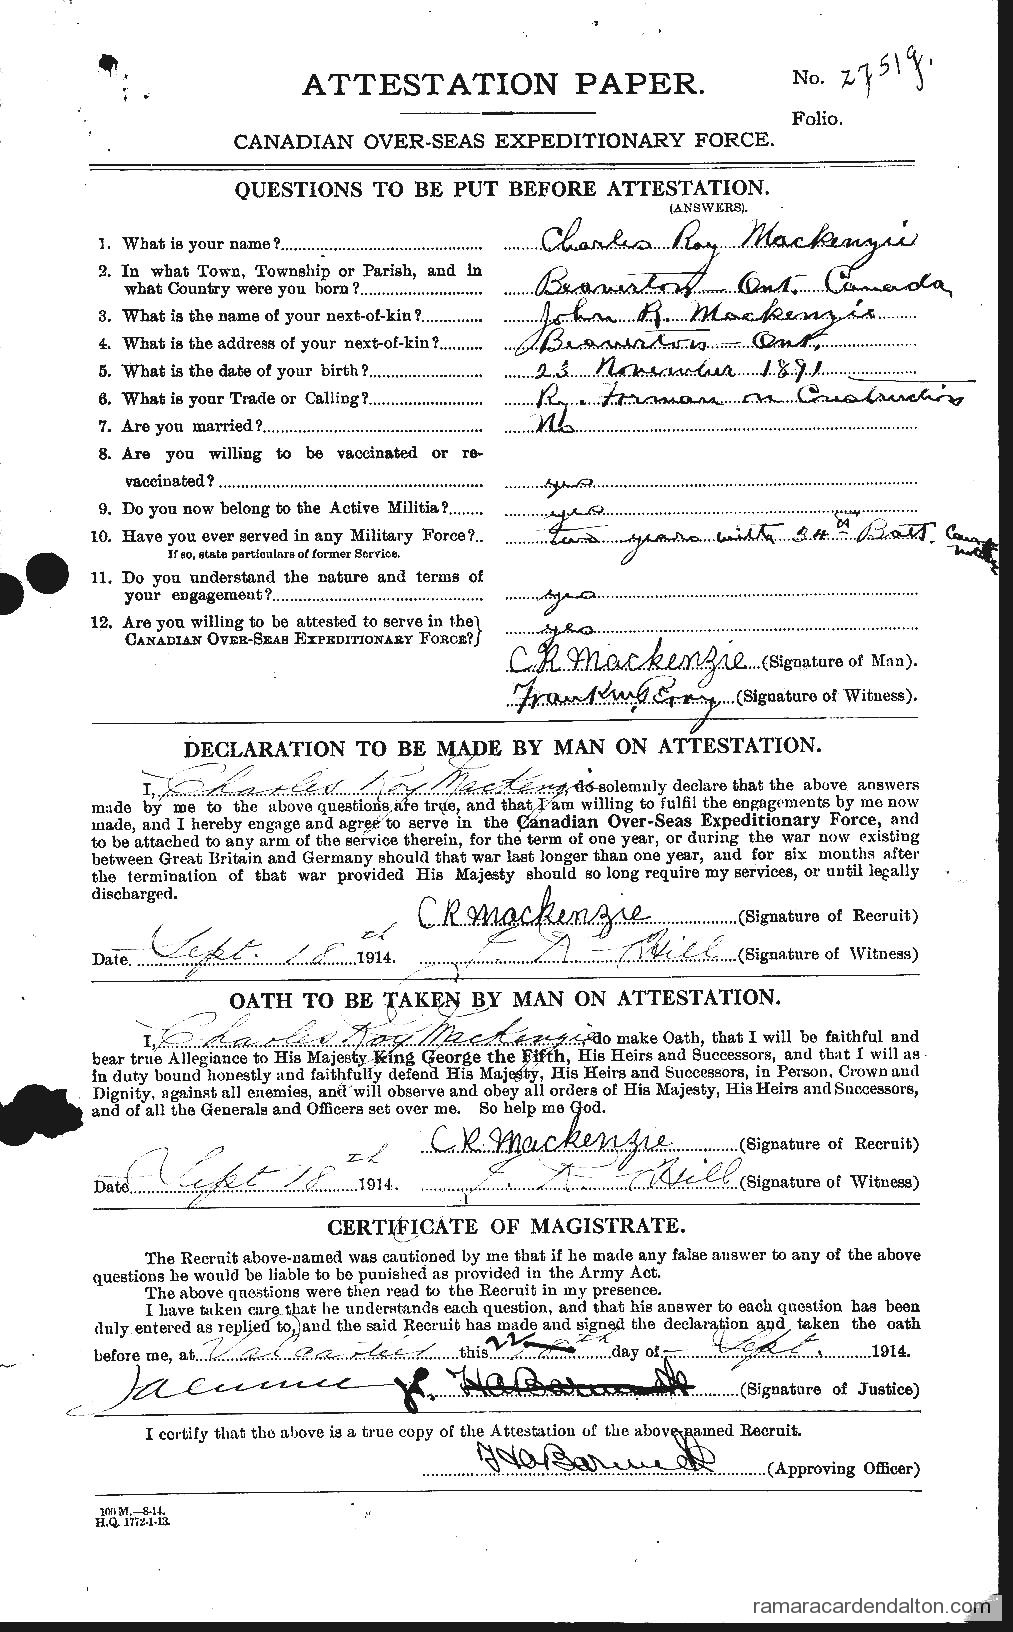 ATTESTATION PAPER.
No. 27519.
Folio.
CANADIAN OVER-SEAS EXPEDITIONARY FORCE.
QUESTIONS TO BE PUT BEFORE ATTESTATION.
(ANSWERS).
1. What is your name? Charles Roy Mackenzie
2. In what Town, Township or Parish, and in
what Country were you born? Beaverton – Ont. Canada
3. What is the name of your next-of-kin? John R. Mackenzie
4. What is the address of your next-of-kin? Beaverton – Ont.
5. What is the date of your birth? 23 November 1891
6. What is your Trade or Calling? Ry. Forman on Construction
7. Are you married? No
8. Are you willing to be vaccinated or re-
vaccinated? yes
9. Do you now belong to the Active Militia? yes
10. Have you ever served in any Military Force? two years with 34th Batt.
If so, state particulars of former Service.
11. Do you understand the nature and terms of
your engagement? yes
12. Are you willing to be attested to serve in the
CANADIAN OVER-SEAS EXPEDITIONARY FORCE? yes
C R Mackenzie (Signature of Man).
(Signature of Witness).
DECLARATION TO BE MADE BY MAN ON ATTESTATION.
I, Charles Roy Mackenzie do solemnly declare that the above answers
made by me to the above questions are true, and that I am willing to fulfil the engagements by me now
made, and I hereby engage and agree to serve in the Canadian Over-Seas Expeditionary Force, and
to be attached to any arm of the service therein, for the term of one year, or during the war now existing
between Great Britain and Germany should that war last longer than one year, and for six months after
the termination of that war provided His Majesty should so long require my services, or until legally
discharged.
C R Mackenzie (Signature of Recruit)
Date Sept. 18th 1914. Hill (Signature of Witness)
OATH TO BE TAKEN BY MAN ON ATTESTATION.
I, Charles Roy Mackenzie do make Oath, that I will be faithful and
bear true Allegiance to His Majesty King George the Fifth, His Heirs and Successors, and that I will as
in duty bound honestly and faithfully defend His Majesty, His Heirs and Successors, in Person, Crown and
Dignity, against all enemies, and will observe and obey all orders of His Majesty, His Heirs and Successors,
and of all the Generals and Officers set over me. So help me God.
C R Mackenzie (Signature of Recruit)
Date Sept 18th 1914. Hill (Signature of Witness)
CERTIFICATE OF MAGISTRATE.
The Recruit above-named was cautioned by me that if he made any false answer to any of the above
questions he would be liable to be punished as provided in the Army Act.
The above questions were then read to the Recruit in my presence.
I have taken care that he understands each question, and that his answer to each question has been
duly entered as replied to, and the said Recruit has made and signed the declaration and taken the oath
before me, at Valcartier this 22 day of Sept. 1914.
(Signature of Justice)
I certify that the above is a true copy of the Attestation of the above-named Recruit.
(Approving Officer)
100 M.—8-14.
H.Q. 1772-1-13.
ramaracardendalton.com